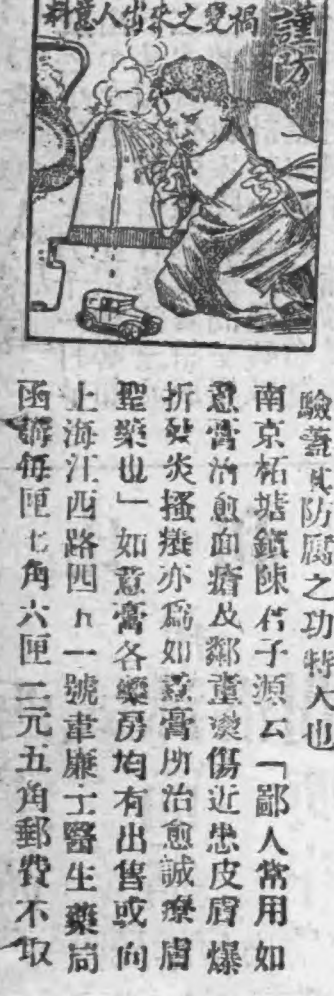 謹防
禍變之來出人意料
驗蓋其防腐之功特大也
南京柘塘鎮陳君子源云「鄙人常用如
意膏治愈面瘡及鄰童燙傷近患皮膚爆
折發炎搔癢亦為如意膏所治愈誠療膚
聖藥也」如意膏各藥房均有出售或向
上海江西路四五一號韋廉士醫生藥局
函購每匣七角六匣二元五角郵費不取